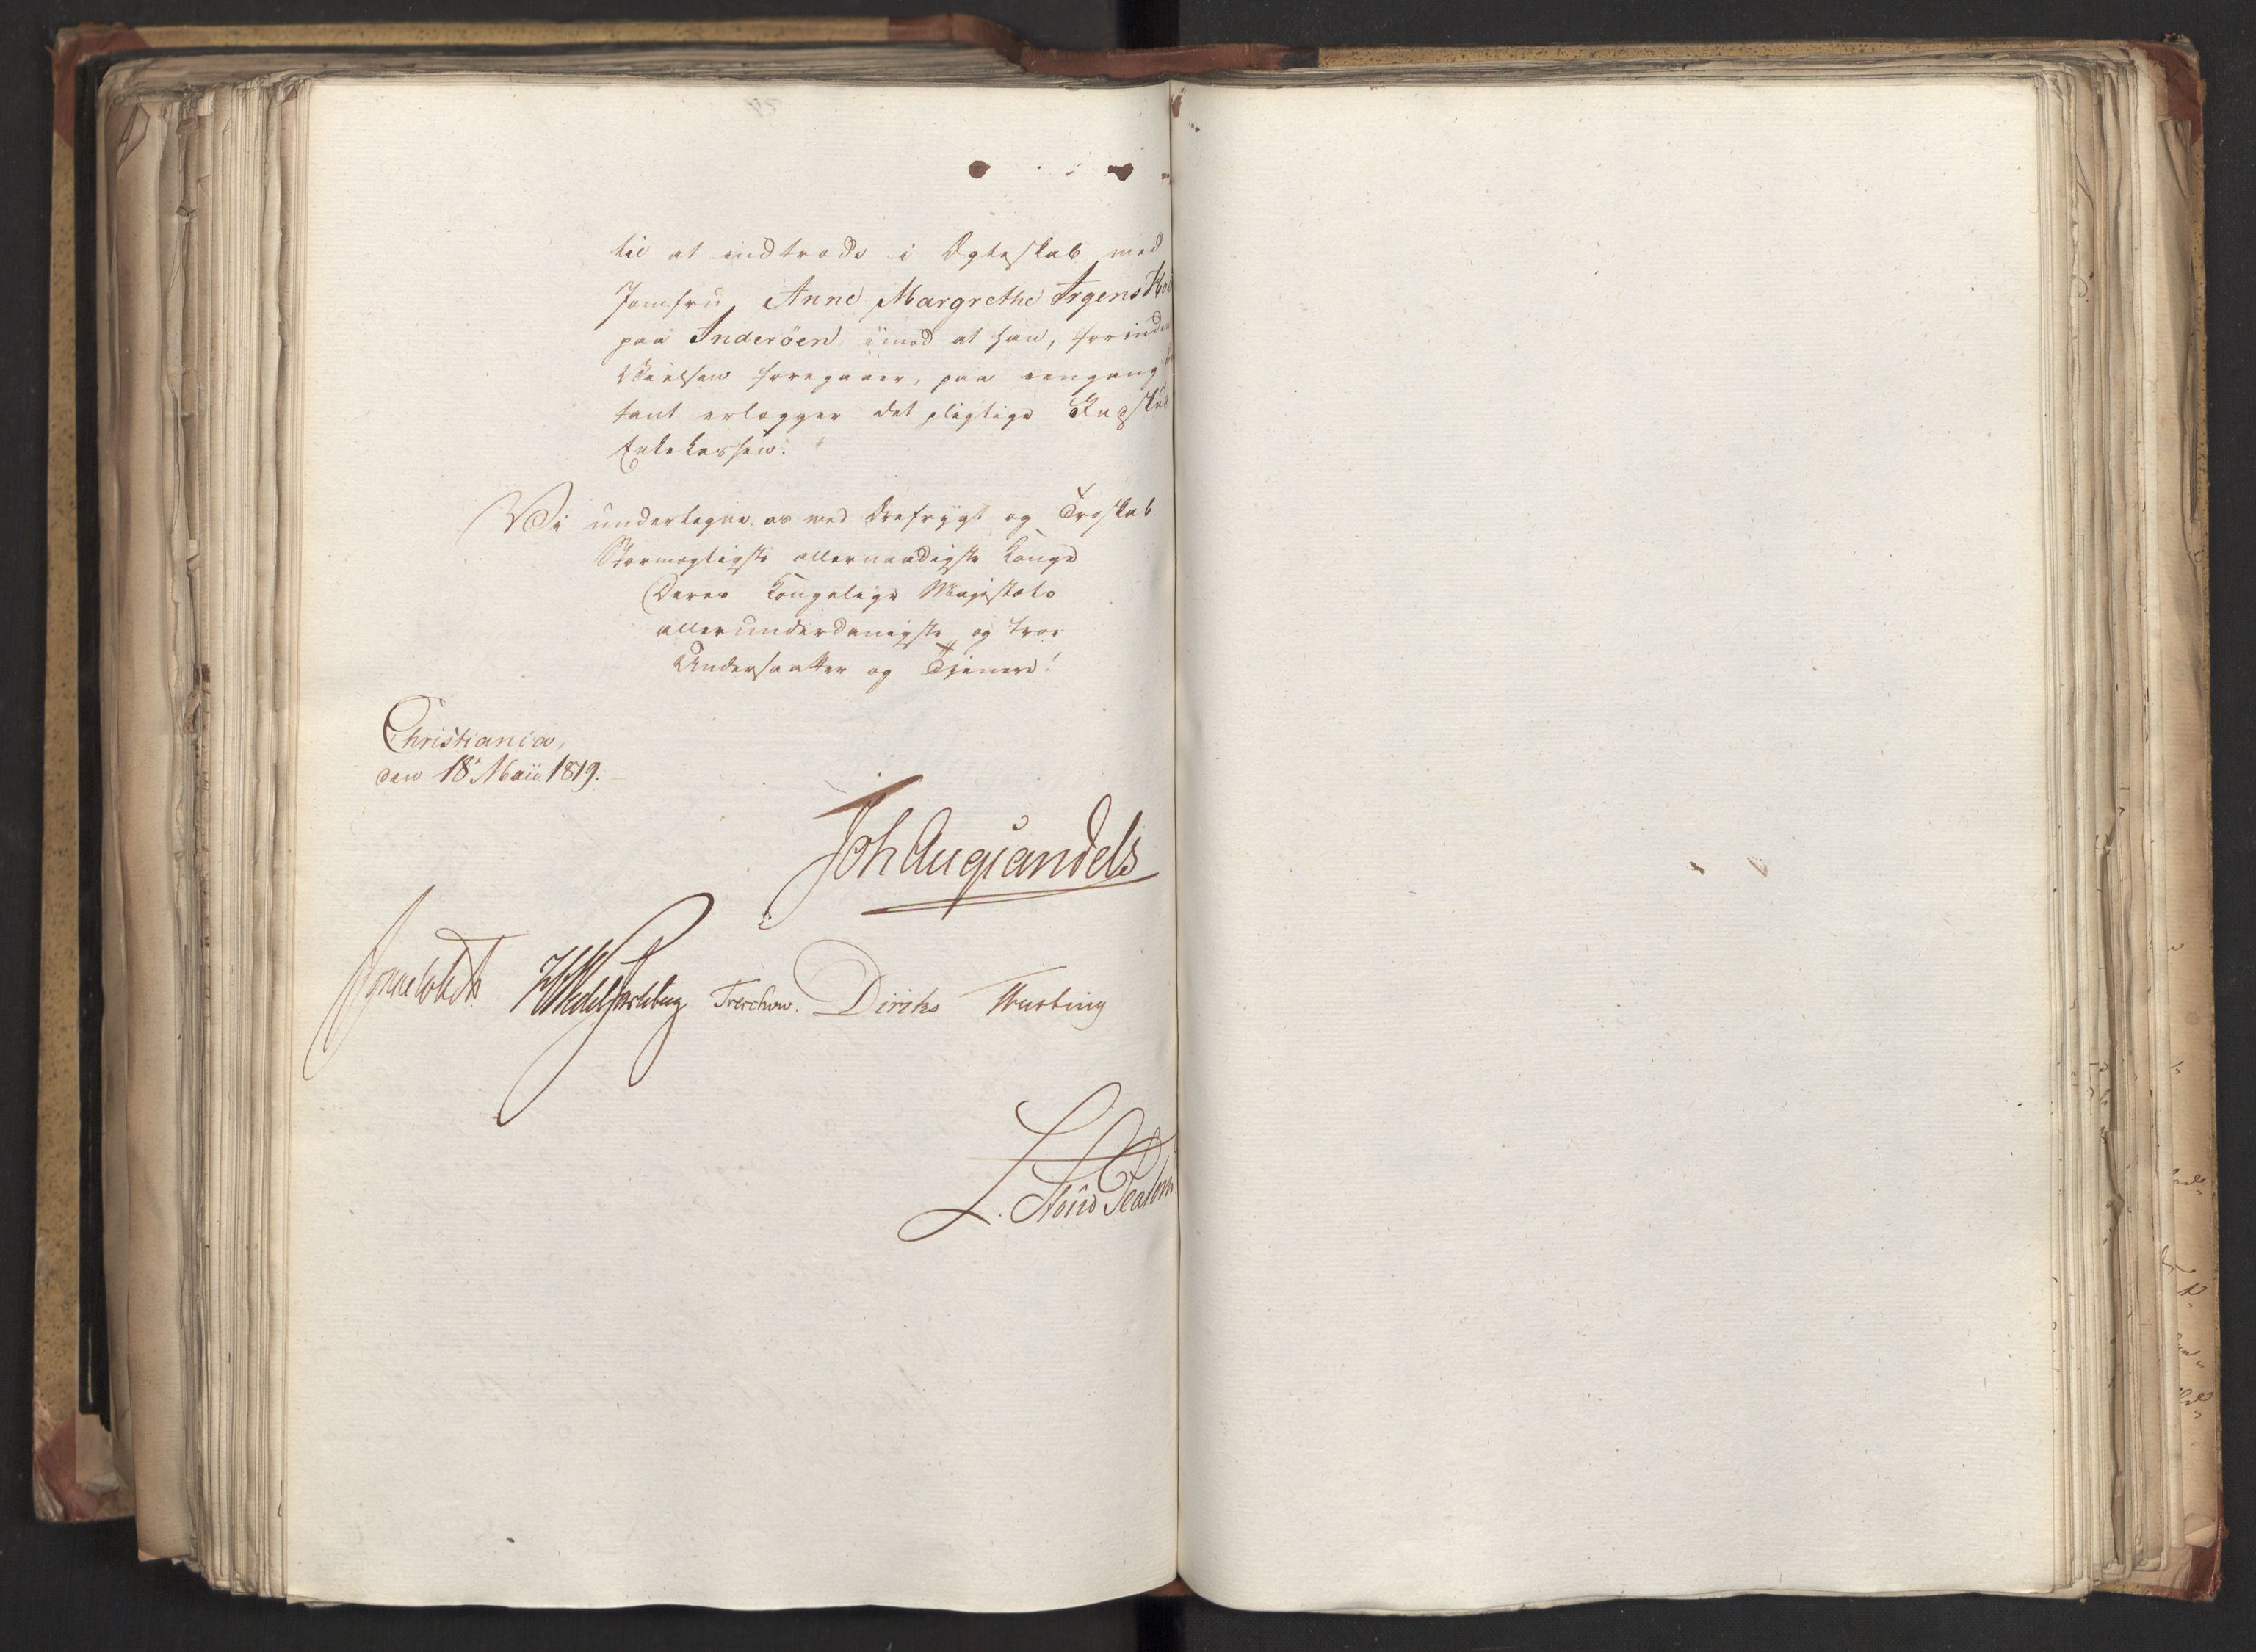 til at indtræde i Ægteskab med
Jomfru Anne Margrethe Irgens
paa Inderöen, imod at han, forinden
Vielsen foregaaer, paa eengang
tant erlægger det pligtige Indskud
Enkekassen."
Vi undertegne os med Ærefrygt og Troskab
Stormægtigste allernaadigste Konge
Deres Kongelige Majestæts
allerunderdanigste og troe
Undersaatter og Tjenere!
Christiania,
den 18 Maii 1819.
Joh Aug Sandels
Sommerhielm HWedel Jarlsberg Treschow. Diriks Fasting
L.